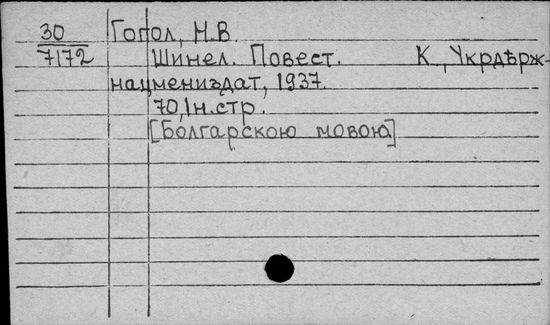 30 Гогол, Н.В.
7172 Шинел. Повест. К., Укрдѣрж-
нацмениздат, 1937.
70,1н.стр.
[Болгарскою мовою]